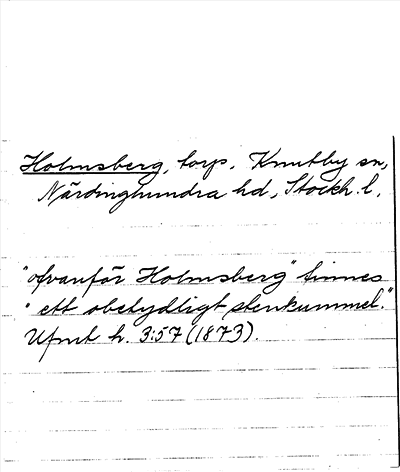 Holmsberg, torp, Knutby sn,
Närdinghundra hd, Stockh. l.
"ofvanför Holmsberg" finnes
"ett obetydligt stenkummel."
Upmt h. 3:57 (1873).